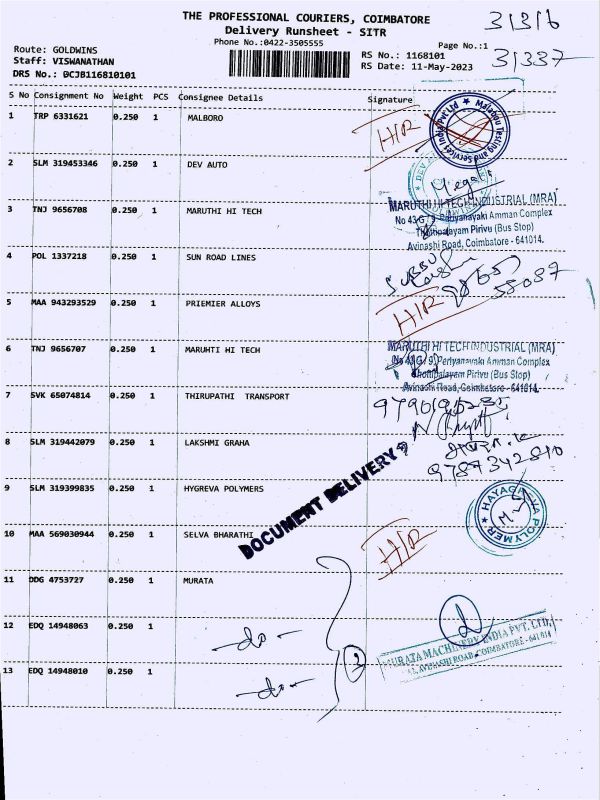 THE PROFESSIONAL COURIERS, COIMBATORE
31316
Delivery Runsheet - SITR
Phone No.:0422-3505555
Page No.:1
Route: GOLDWINS
RS No.: 1168101
31337
Staff: VISWANATHAN
RS Date: 11-May-2023
DRS No.: 0CJB116810101
S No Consignment No Weight PCS Consignee Details Signature
1 TRP 6331621 0.250 1 MALBORO
H/R
2 SLM 319453346 0.250 1 DEV AUTO
3 TNJ 9656708 0.250 1 MARUTHI HI TECH
MARUTHI HI TECH INDUSTRIAL (MRA)
No 43 G / 9, Periyanayaki Amman Complex
Thottipalayam Pirivu (Bus Stop)
Avinashi Road, Coimbatore - 641014.
4 POL 1337218 0.250 1 SUN ROAD LINES
SUBBU
5 MAA 943293529 0.250 1 PRIEMIER ALLOYS
H/R
6 TNJ 9656707 0.250 1 MARUHTI HI TECH
MARUTHI HI TECH INDUSTRIAL (MRA)
No 43 G / 9, Periyanayaki Amman Complex
Thottipalayam Pirivu (Bus Stop)
Avinashi Road, Coimbatore - 641014.
7 SVK 65074814 0.250 1 THIRUPATHI TRANSPORT
8 SLM 319442079 0.250 1 LAKSHMI GRAHA
9787342810
9 SLM 319399835 0.250 1 HYGREVA POLYMERS
DOCUMENT DELIVERY
HAYAGREVA POLYMER
10 MAA 569030944 0.250 1 SELVA BHARATHI
H/R
11 DDG 4753727 0.250 1 MURATA
12 EDQ 14948063 0.250 1
-do-
3
MURATA MACHINERY INDIA PVT. LTD.
AVINASHI ROAD, COIMBATORE - 641014
13 EDQ 14948010 0.250 1
-do-